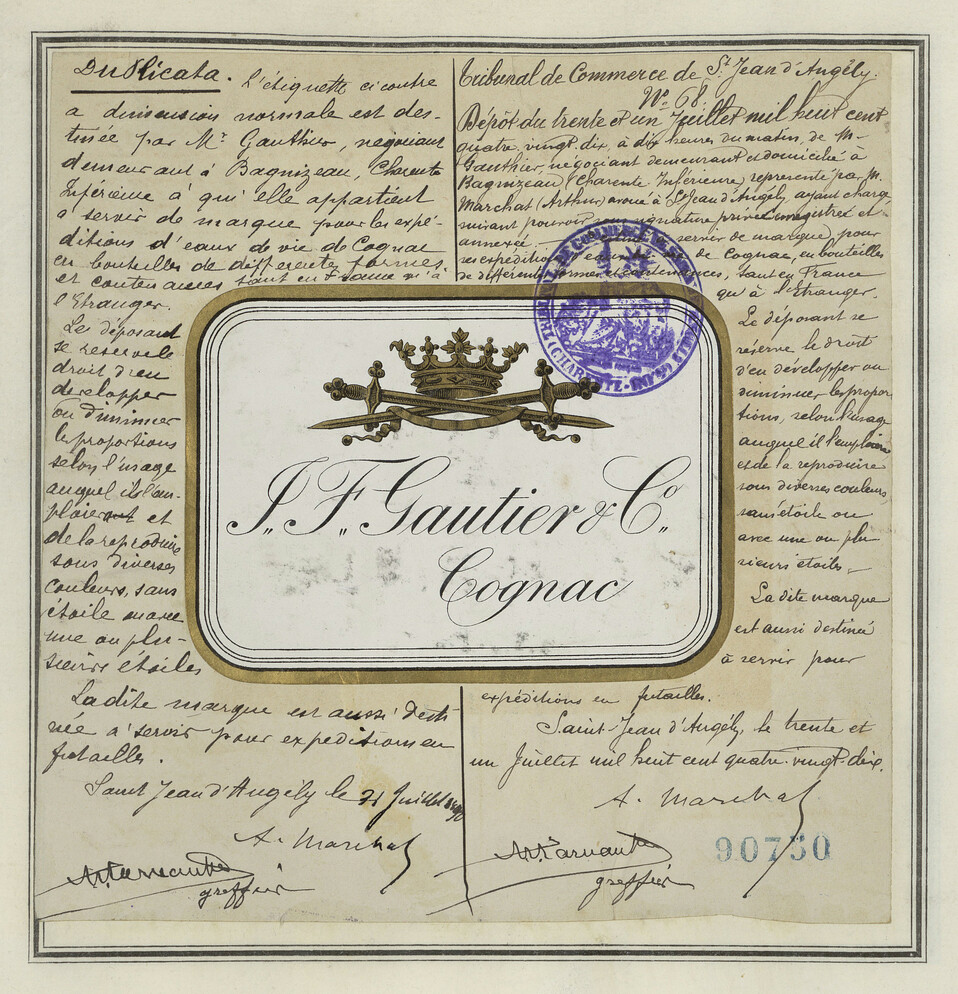 Duplicata. L'étiquette ci contre
a dimension normale est des-
tinée par Mr. Gauthier, négociant
demeurant à Bagnizeau, Charente
Inférieure à qui elle appartient
a servir de marque pour les expé-
ditions d'eaux de vie de Cognac
en bouteilles de differente formes
et contenances tant en France qu'à
l'Etranger.
Le déposant
se reserve le
droit d'en
developper
ou diminuer
les proportions
selon l'usage
auquel il l'em-
ploierait et
de la reproduire
sous diverses
couleurs, sans
étoile ou avec
une ou plu-
sieurs étoiles
La dite marque est aussi desti
née a servir pour expeditions en
futailles.
Saint Jean d'Angély le 31 Juillet 1890
A. Marchat
greffier
Tribunal de Commerce de St. Jean d'Angély.
No. 68.
Dépôt du trente et un Juillet mil huit cent
quatre vingt dix, à dix heures du matin, de M.
Gauthier, négociant demeurant et domicilié à
Bagnizeau (Charente Inférieure) representé par M.
Marchat (Arthur) avoué à St Jean d'Angély, ayant charge,
suivant pouvoir sous signature privée enregistrée et
annexée. servir de marque, pour
ses expéditions d'eaux de vie de Cognac, en bouteilles
de différentes formes et contenances, tant en France
qu'à l'Etranger.
Le déposant se
réserve le droit
d'en développer ou
diminuer les propor
tions, selon l'usage
auquel il l'emploiera
et de la reproduire
sous diverses couleurs,
sans étoile ou
avec une ou plu
sieurs étoiles.
La dite marque
est aussi destinée
à servir pour
expéditions en futailles.
Saint Jean d'Angély, le trente et
un Juillet mil huit cent quatre-vingt-dix.
A. Marchat
greffier
90730
TRIBUNAL DE COMMERCE
(CHARENTE-INFRE)
J. F. Gautier & Co.
Cognac